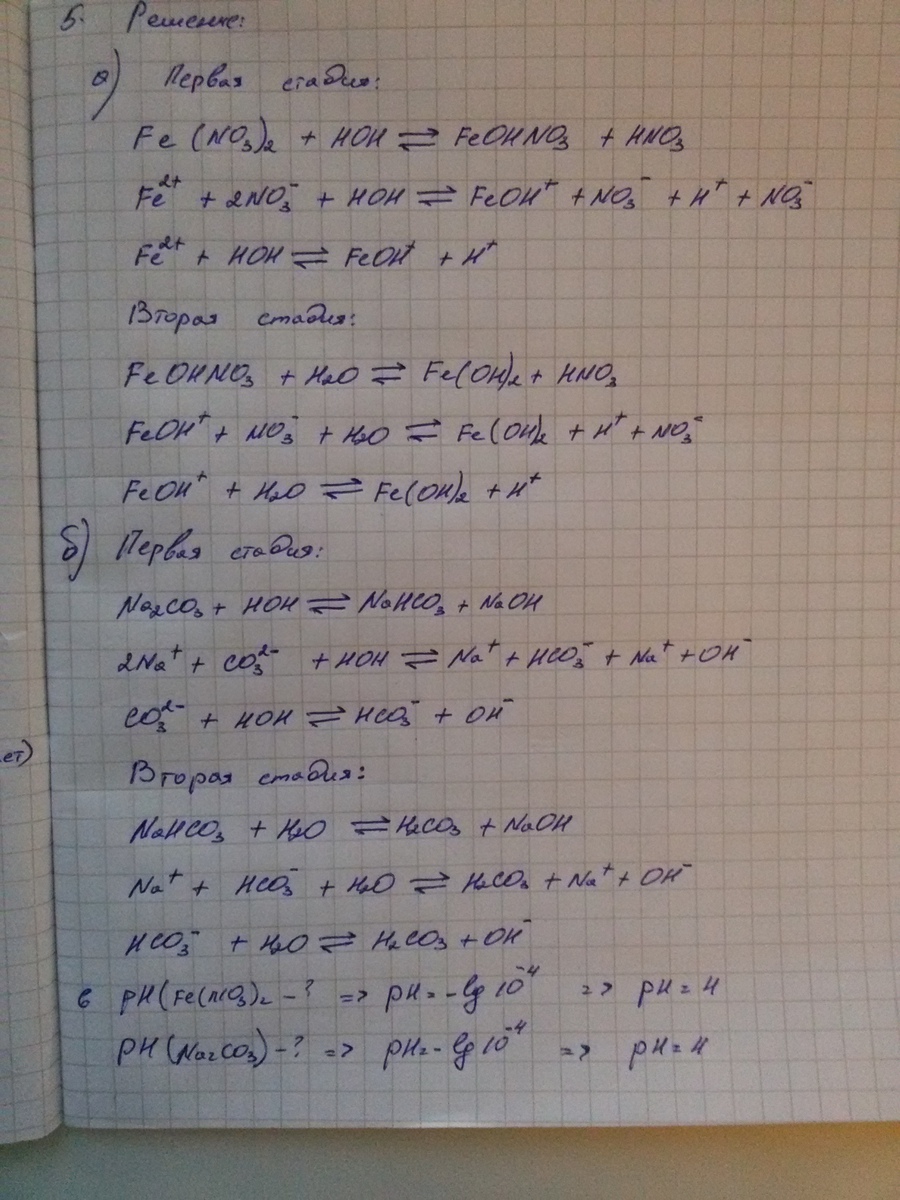 5. Решение:
а) Первая стадия:
Fe(NO₃)₂ + HOH ⇌ FeOHNO₃ + HNO₃
Fe²⁺ + 2NO₃⁻ + HOH ⇌ FeOH⁺ + NO₃⁻ + H⁺ + NO₃⁻
Fe²⁺ + HOH ⇌ FeOH⁺ + H⁺
Вторая стадия:
FeOHNO₃ + H₂O ⇌ Fe(OH)₂ + HNO₃
FeOH⁺ + NO₃⁻ + H₂O ⇌ Fe(OH)₂ + H⁺ + NO₃⁻
FeOH⁺ + H₂O ⇌ Fe(OH)₂ + H⁺
б) Первая стадия:
Na₂CO₃ + HOH ⇌ NaHCO₃ + NaOH
2Na⁺ + CO₃²⁻ + HOH ⇌ Na⁺ + HCO₃⁻ + Na⁺ + OH⁻
CO₃²⁻ + HOH ⇌ HCO₃⁻ + OH⁻
ет)
Вторая стадия:
NaHCO₃ + H₂O ⇌ H₂CO₃ + NaOH
Na⁺ + HCO₃⁻ + H₂O ⇌ H₂CO₃ + Na⁺ + OH⁻
HCO₃⁻ + H₂O ⇌ H₂CO₃ + OH⁻
в pH(Fe(NO₃)₂ - ? => pH = -lg 10⁻⁴ => pH = 4
pH(Na₂CO₃) - ? => pH = -lg 10⁻⁴ => pH = 4